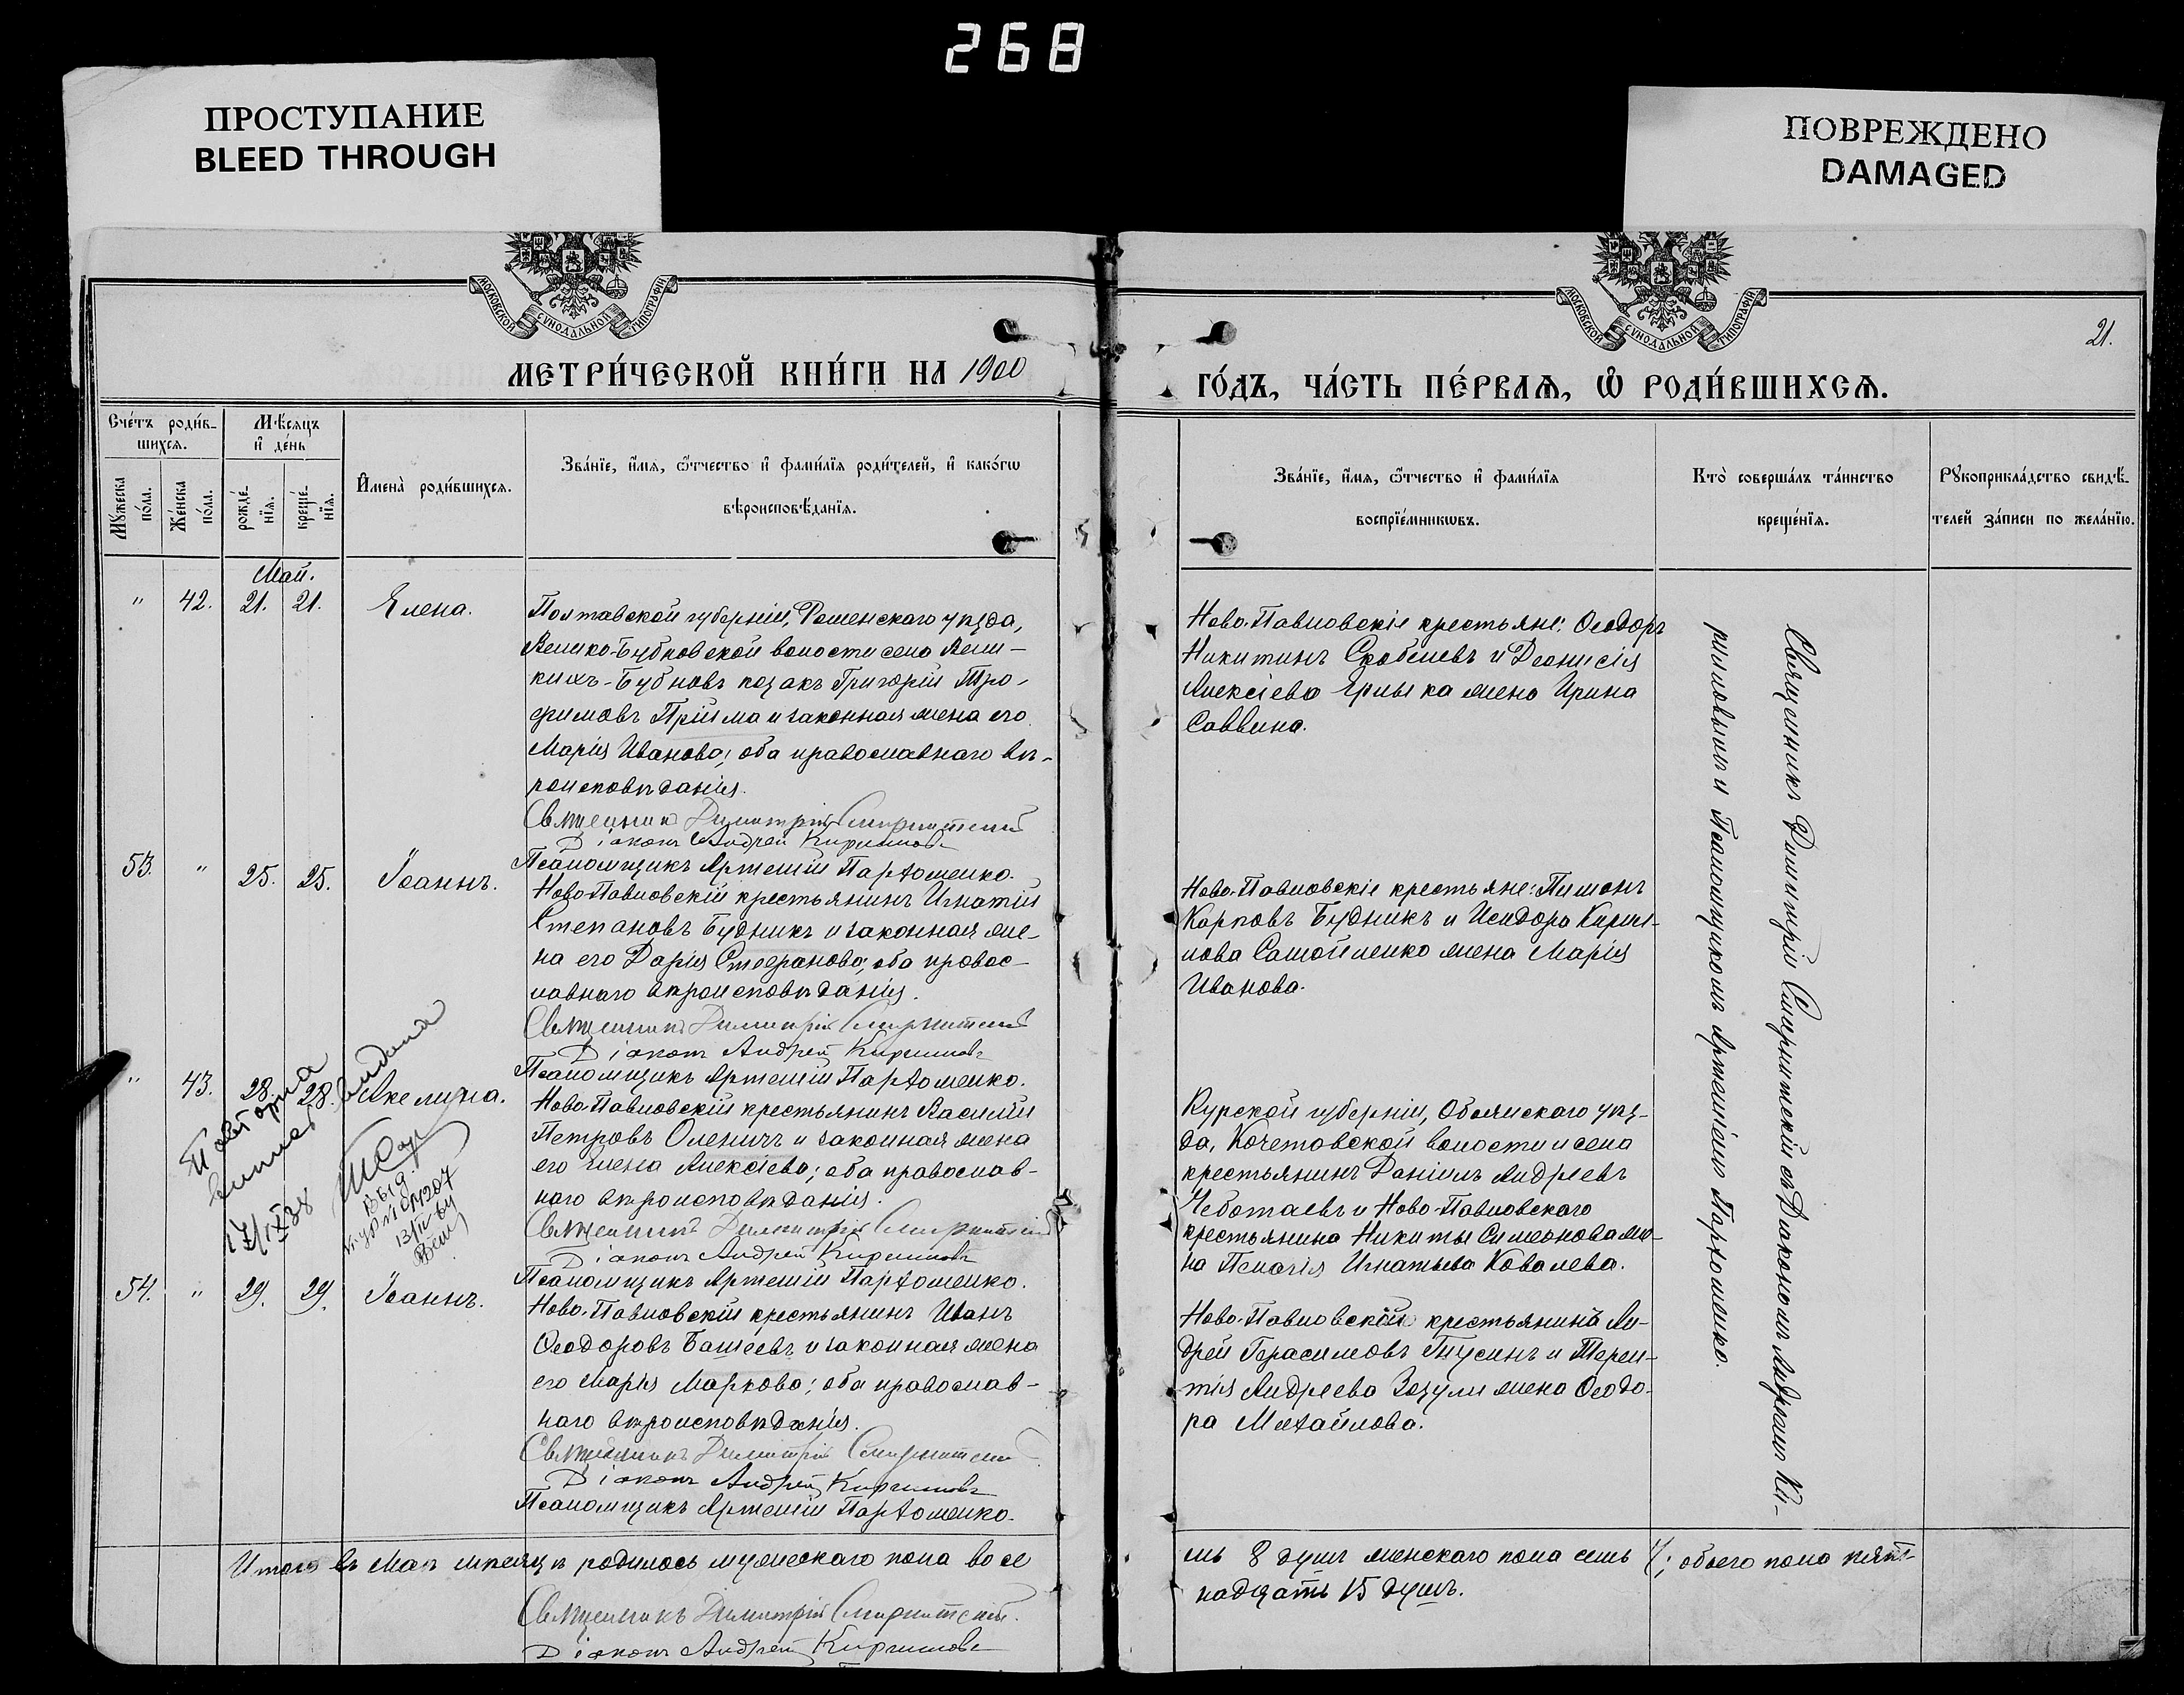 268
ПРОСТУПАНИЕ
BLEED THROUGH
ПОВРЕЖДЕНО
DAMAGED
МОСКОВСКОЙ СѴНОДАЛЬНОЙ ТИПОГРАФІИ
МОСКОВСКОЙ СѴНОДАЛЬНОЙ ТИПОГРАФІИ
21.
МЕТРИ́ЧЕСКОЙ КНИ́ГИ НА 1900
ГО́ДЪ, ЧА́СТЬ ПЕ́РВАѦ, Ѿ РОДИ́ВШИХСѦ.
Сче́тъ роди́в-
шихсѧ.
Мѣ́сѧцъ
и҆ де́нь
Мꙋ́жеска по́ла.
Же́нска по́ла.
рожде́-
нїѧ.
креще́-
нїѧ.
И҆мена̀ роди́вшихсѧ.
Зва́нїе, и҆́мѧ, ѻ҆́тчество и҆ фами́лїѧ роди́телей, и҆ како́гѡ
вѣроисповѣ́данїѧ.
Зва́нїе, и҆́мѧ, ѻ҆́тчество и҆ фами́лїѧ
воспрїе́мникѡвъ.
Кто̀ соверша́лъ та́инство
креще́нїѧ.
Рꙋкоприкла́дство свидѣ́-
телей за́писи по жела́нїю.
Май.
" 42. 21. 21. Елена.
Полтавской губерніи, Роменскаго уѣзда,
Велико-Бубновской волости села Вели-
кихъ-Бубновъ козакъ Григорій Тро-
фимовъ Пріима и законная жена его
Марія Иванова; оба православнаго вѣ-
роисповѣданія.
Священникъ Димитрій
Діаконъ Андрей Кирилловъ
Псаломщикъ Артемій Пархоменко.
Ново-Павловскіе крестьяне: Ѳеодоръ
Никитинъ Скобелевъ и Діонисія
Алексіева жена Ирина
Саввина.
53. " 25. 25. Іоаннъ.
Ново-Павловскій крестьянинъ Игнатій
Степановъ Будникъ и законная же-
на его Дарія Стефанова; оба правос-
лавнаго вѣроисповѣданія.
Священникъ Димитрій
Діаконъ Андрей Кирилловъ
Псаломщикъ Артемій Пархоменко.
Ново-Павловскіе крестьяне: Пимонъ
Карповъ Будникъ и Исидора Кирил-
лова Самойленко жена Марія
Иванова.
" 43. 28. 28. Акелина.
Ново-Павловскій крестьянинъ Василій
Петровъ Оленичъ и законная жена
его Елена Алексіева; оба православ-
наго вѣроисповѣданія.
Священникъ Димитрій
Діаконъ Андрей Кирилловъ
Псаломщикъ Артемій Пархоменко.
Курской губерніи, Обоянскаго уѣз-
да, Кочетовской волости и села
крестьянинъ Даніилъ Андреевъ
Чеботаевъ и Ново-Павловскаго
крестьянина Никиты Симеонова же-
на Пелагія Игнатьева Ковалева.
Повторна
видана
54. " 29. 29. Іоаннъ.
Ново-Павловскій крестьянинъ Иванъ
Ѳеодоровъ Башеевъ и законная жена
его Марія Маркова; оба православ-
наго вѣроисповѣданія.
Священникъ Димитрій
Діаконъ Андрей Кирилловъ
Псаломщикъ Артемій Пархоменко.
Ново-Павловскій крестьянинъ Ан-
дрей Герасимовъ Гнусинъ и Терен-
тія Андреева Зозули жена Ѳеодо-
ра Михайлова.
Священникъ Димитрій съ Діакономъ Андреемъ Ки-
рилловымъ и Псаломщикомъ Артеміемъ Пархоменко.
Итого въ Маѣ мѣсяцѣ родилось мужескаго пола восе
мь 8 душъ женскаго пола семь 7; обоего пола пят-
надцать 15 душъ.
Священникъ Димитрій
Діаконъ Андрей Кирилловъ